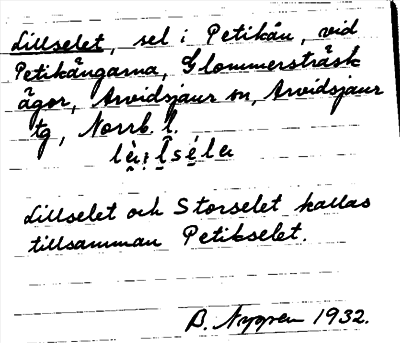 Lillselet, sel i Petikån, vid
Petikångarna, Glommersträsk
ägor, Arvidsjaur sn, Arvidsjaur
tg, Norrb. l.
Lillselet och Storselet kallas
tillsamman Petikselet.
B. Nygren 1932.